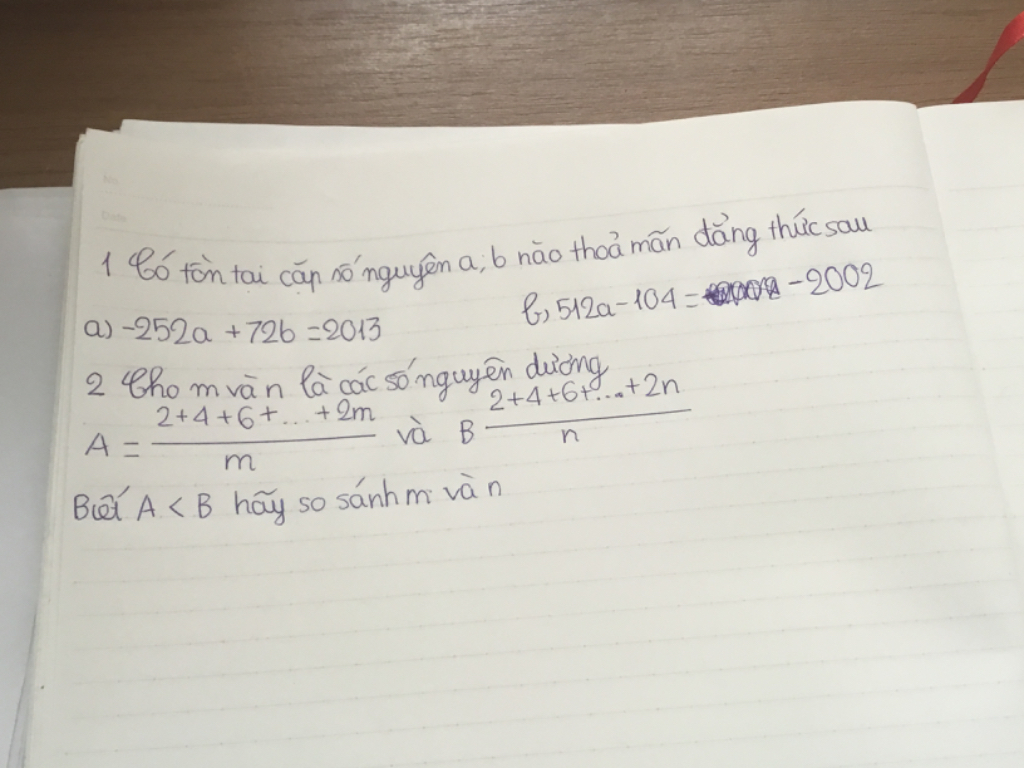 1 Có tồn tại cặp số nguyên a; b nào thoả mãn đẳng thức sau
a) -252a + 72b = 2013 b, 512a - 104 = -2002
2 Cho m và n là các số nguyên dương
A = \frac{2+4+6+...+2m}{m} và B \frac{2+4+6+...+2n}{n}
Biết A < B hãy so sánh m và n